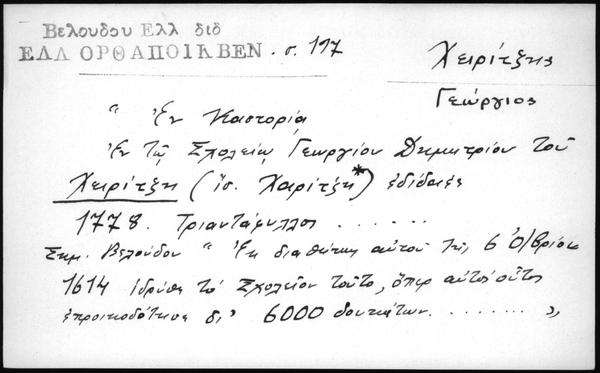 Βελουδου Ελλ διδ
ΕΛΛ ΟΡΘΑΠΟΙΚΒΕΝ . σ. 117
Χειρίτζης
Γεώργιος
" Ἐν Καστορίᾳ
Ἐν τῷ Σχολείῳ Γεωργίου Δημητρίου τοῦ
Χειρίτζη (ἴσ. Χαρίτζη*) ἐδίδαξε
1778. Τριαντάφυλλος . . . . . .
Σημ. Βελούδου " Ἐκ διαθήκης αὐτοῦ τῆς 6 Ὀ/βρίου
1614 ἱδρύθη τὸ Σχολεῖον τοῦτο, ὅπερ αὐτὸς οὗτος
ἐπροικοδότησε δι' 6000 δουκάτων . . . . . . . "